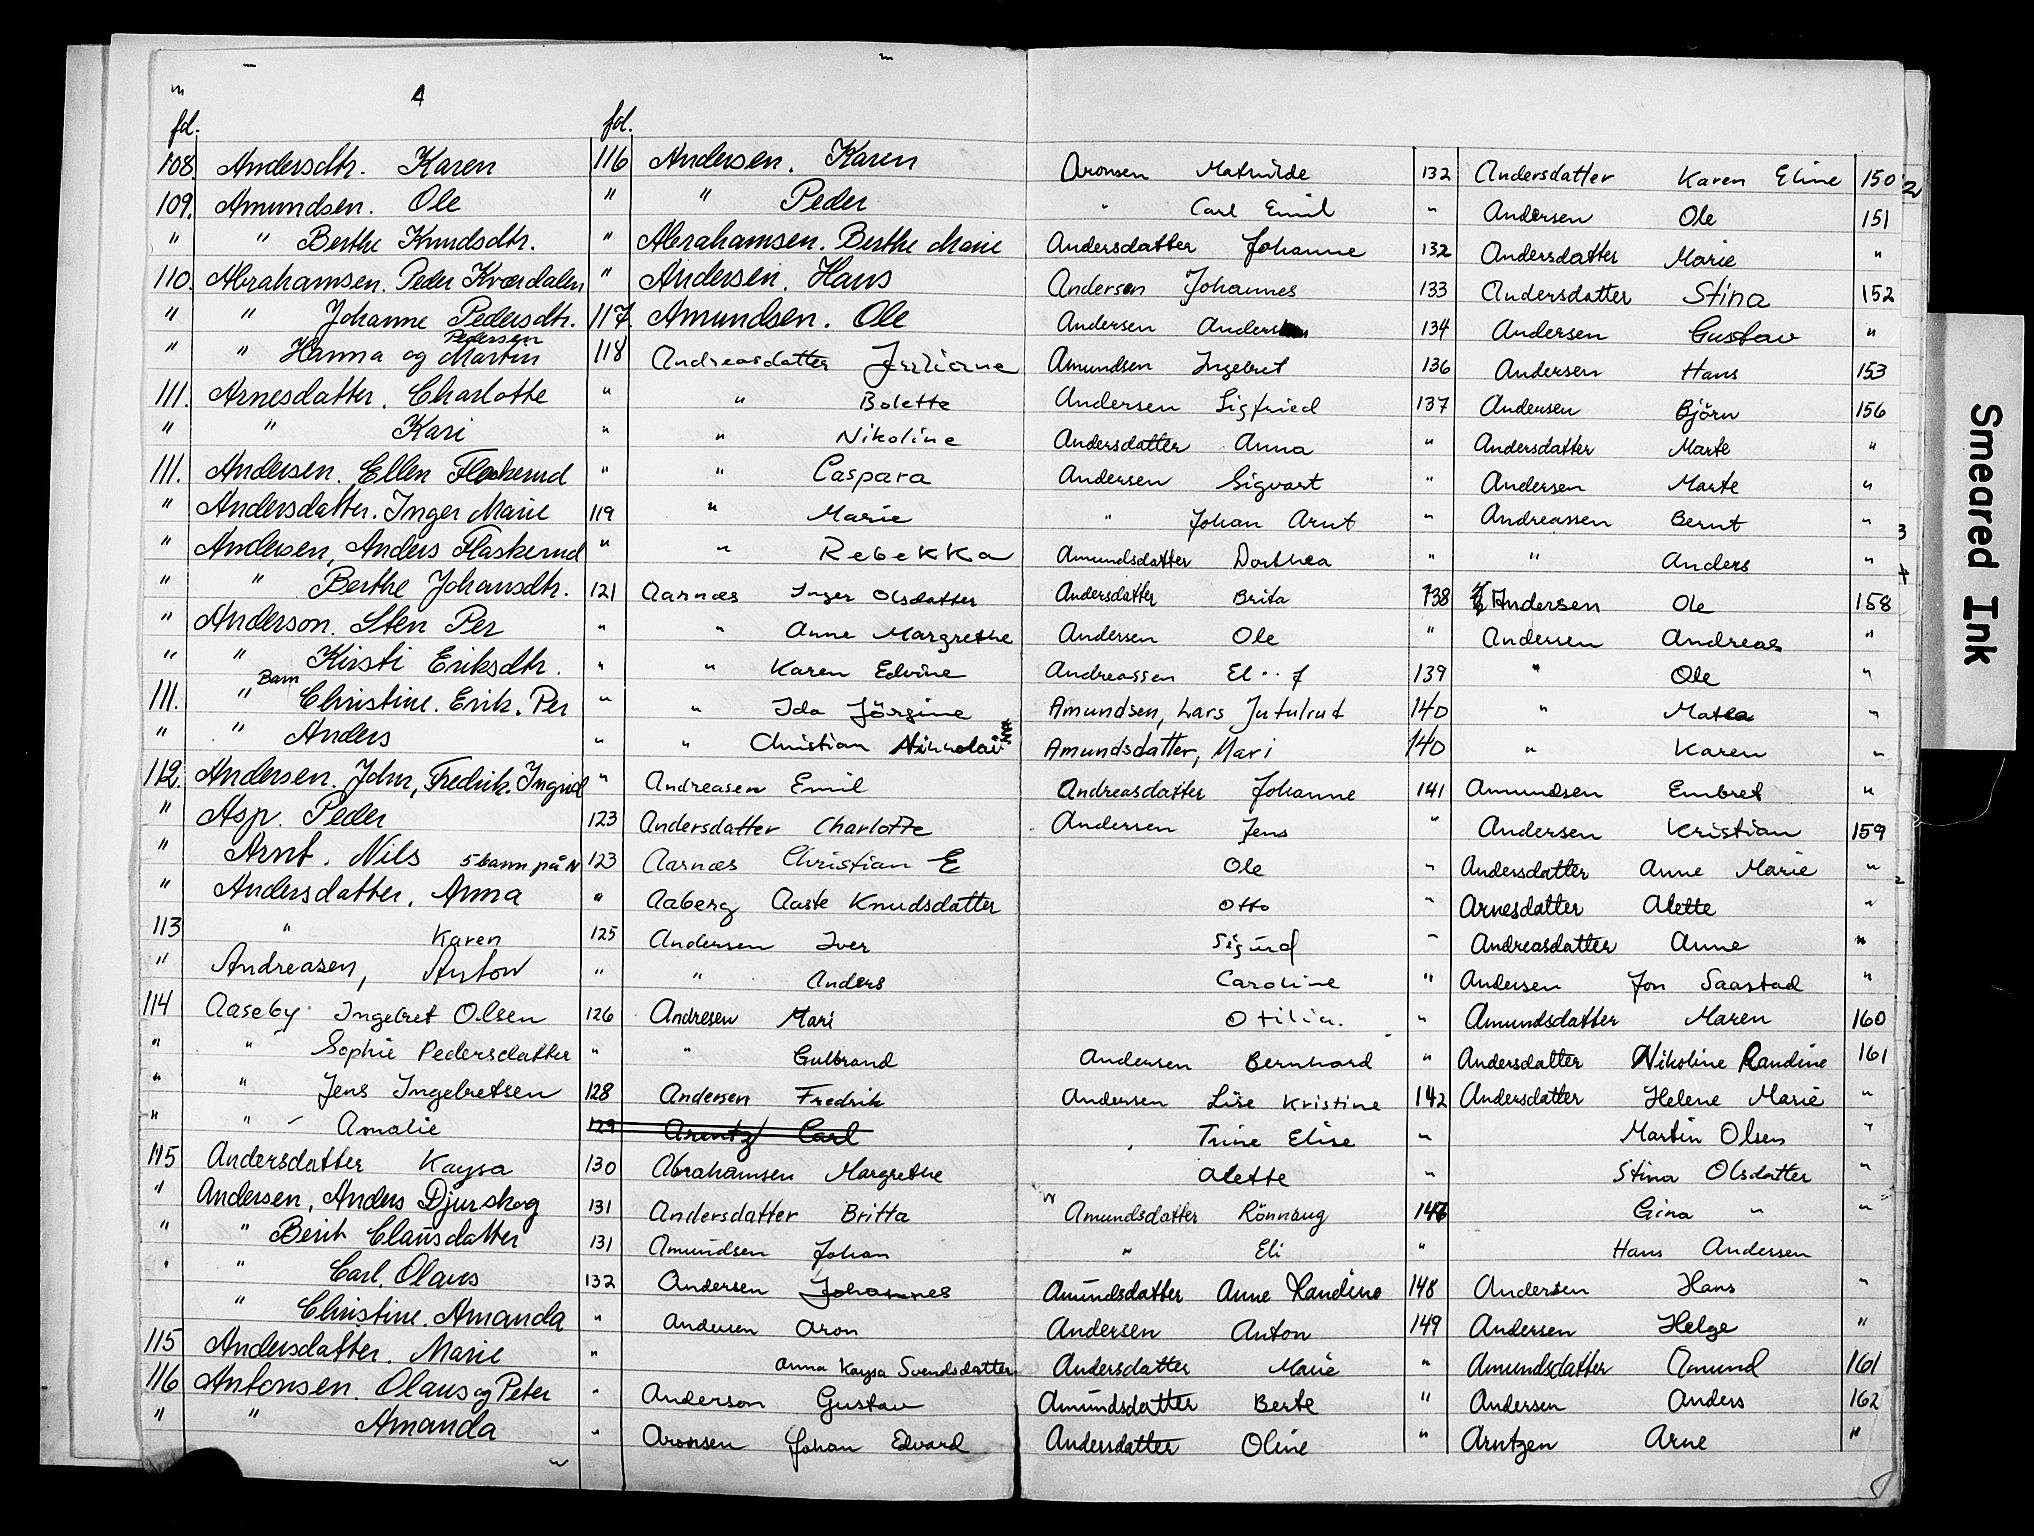 A
fol.
108. Andersdtr. Karen
109. Amundsen. Ole
" " Berthe Knudsdtr.
110. Abrahamsen. Peder Kværdalen
" " Johanne Pedersdtr.
Pedersen
" " Hanna og Martin
111. Arnesdatter. Charlotte
" " Kari
111. Andersen. Ellen Flaskerud
" Andersdatter. Inger Marie
" Andersen, Anders Flaskerud
" " Berthe Johansdtr.
" Anderson. Sten Per
" " Kirsti Eriksdtr.
Barn
111. " Christine. Erik. Per
" " Anders
112. Andersen. John, Fredrik. Ingrid
" Asp. Peder
" Arnt. Nils 5 barn på N
" Andersdatter. Anna
113 " Karen
" Andreasen, Anton
114 Aaseby Ingebret Olsen
" " Sophie Pedersdatter
" " Jens Ingebretsen
" " Amalie
115 Andersdatter Kaysa
" Andersen, Anders Djurskog
" " Berit Clausdatter
" " Carl. Olaus
" Christine. Amanda
115 Andersdatter. Marie
116 Antonsen. Olaus og Peter
" " Amanda
fol.
116 Andersen. Karen
" " Peder
" Abrahamsen. Berthe Marie
" Andersen. Hans
117. Amundsen. Ole
118 Andreasdatter Juliane
" " Bolette
" " Nikoline
" " Caspara
119 " Marie
" " Rebekka
121 Aarnæs Inger Olsdatter
" " Anne Margrethe
" " Karen Edvine
" " Ida Jörgine
" " Christian Nikkolai
" Andreasen Emil
123 Andersdatter Charlotte
123 Aarnæs Christian E
" Aaberg Aaste Knudsdatter
125 Andersen Iver
" " Anders
126 Andresen Mari
" " Gulbrand
128 Andersen Fredrik
129 Arentz Carl
130 Abrahamsen Margrethe
131 Andersdatter Britta
131 Amundsen Johan
132 Andersen Johannes
" Andersen Aron
" Anna Kaysa Svendsdatter
" Anderson Gustav
" Aronsen Johan Edvard
Aronsen Mathilde 132
" Carl Emil "
Andersdatter Johanne 132
Andersen Johannes 133
Andersen Anders 134
Amundsen Ingebret 136
Andersen Sigfried 137
Andersdatter Anna "
Andersen Sigvart "
" Johan Arnt "
Amundsdatter Dorthea "
Andersdatter Brita 138
Andersen Ole "
Andreassen El..f 139
Amundsen, Lars Jutulrud 140
Amundsdatter, Mari 140
Andreasdatter Johanne 141
Andersen Jens "
Ole "
Otto "
Sigurd "
Caroline "
Otilia. "
Andersen Bernhard "
Andersen Lise Kristine 142
Trine Elise "
Alette "
Amundsdatter Rönnaug 146
" Eli "
Amundsdatter Anne Randine 148
Andersen Anton 149
Andersdatter Marie "
Amundsdatter Berte "
Andersdatter Oline "
Andersdatter Karen Eline 150
Andersen Ole 151
Andersdatter Marie "
Andersdatter Stina 152
Andersen Gustav "
Andersen Hans 153
Andersen Björn 156
Andersdatter Marte "
Andersen Marte "
Andreassen Bernt "
" Anders "
Andersen Ole 158
Andersen Andreas "
" Ole "
" Matea "
" Karen "
Amundsen Embret "
Andersen Kristian 159
Andersdatter Anne Marie "
Arnesdatter Alette "
Andreasdatter Anne "
Andersen Jon Saastad "
Amundsdatter Maren 160
Andersdatter Nikoline Randine 161
Andersdatter Helene Marie "
Martin Olsen "
Stina Olsdatter "
Gina " "
Hans Andersen
Andersen Hans "
Andersen Helge "
Amundsdatter Amund 161
Andersen Anders 162
Arntzen Arne "
Smeared Ink